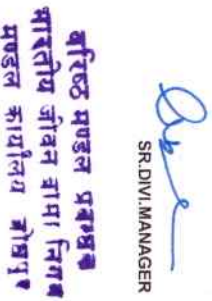 SR.DIVI.MANAGER
वरिष्ठ मण्डल प्रबन्धक
भारतीय जीवन बीमा निगम
मण्डल कार्यालय जोधपुर